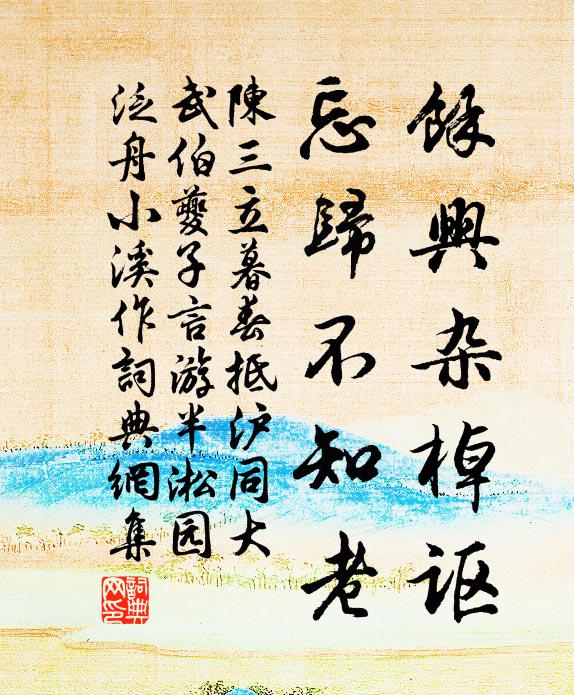 餘興杂棹讴
忘歸不知老
陳三立暮春抵沪同大
武伯夔子言游半淞园
泛舟小溪作詞典網集
詞典
网印